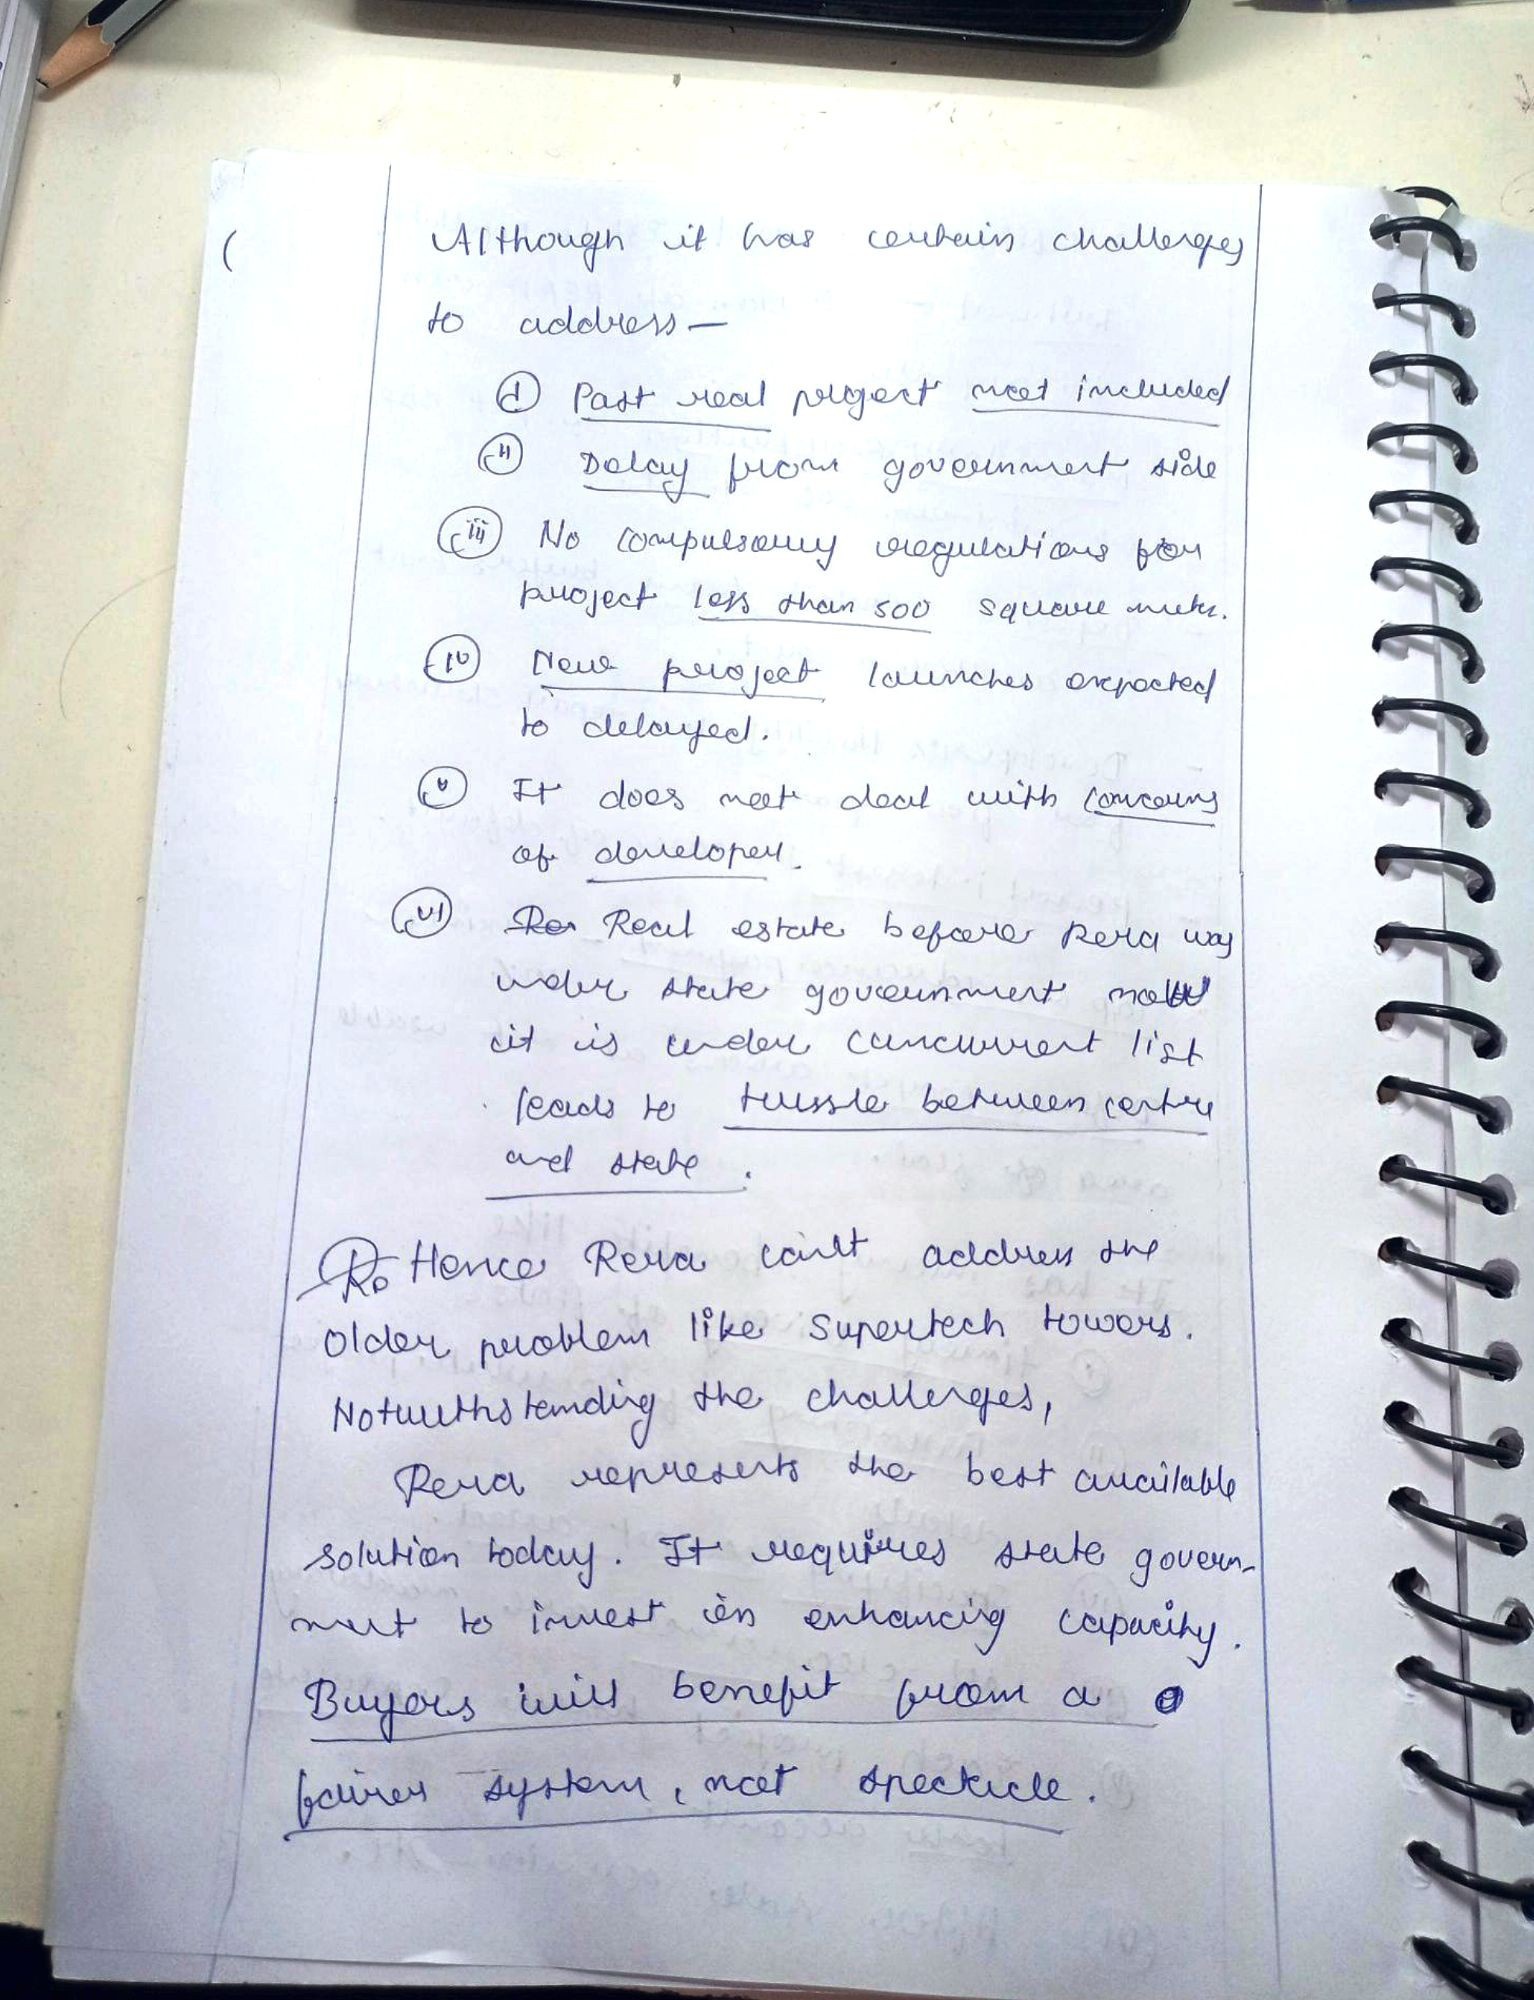 Although it has certain challenges
to address—
(i) Past real project not included
(ii) Delay from government side
(iii) No compulsory regulations for
project less than 500 square meter.
(iv) New project launches expected
to delayed.
(v) It does not deal with concerns
of developer.
(vi) Real estate before Rera was
under state government now
it is under concurrent list
leads to tussle between centre
and state.
Hence Rera can't address the
older problem like Supertech towers.
Notwithstanding the challenges,
Rera represents the best available
solution today. It requires state govern-
ment to invest in enhancing capacity.
Buyers will benefit from a
fairer system, not spectacle.